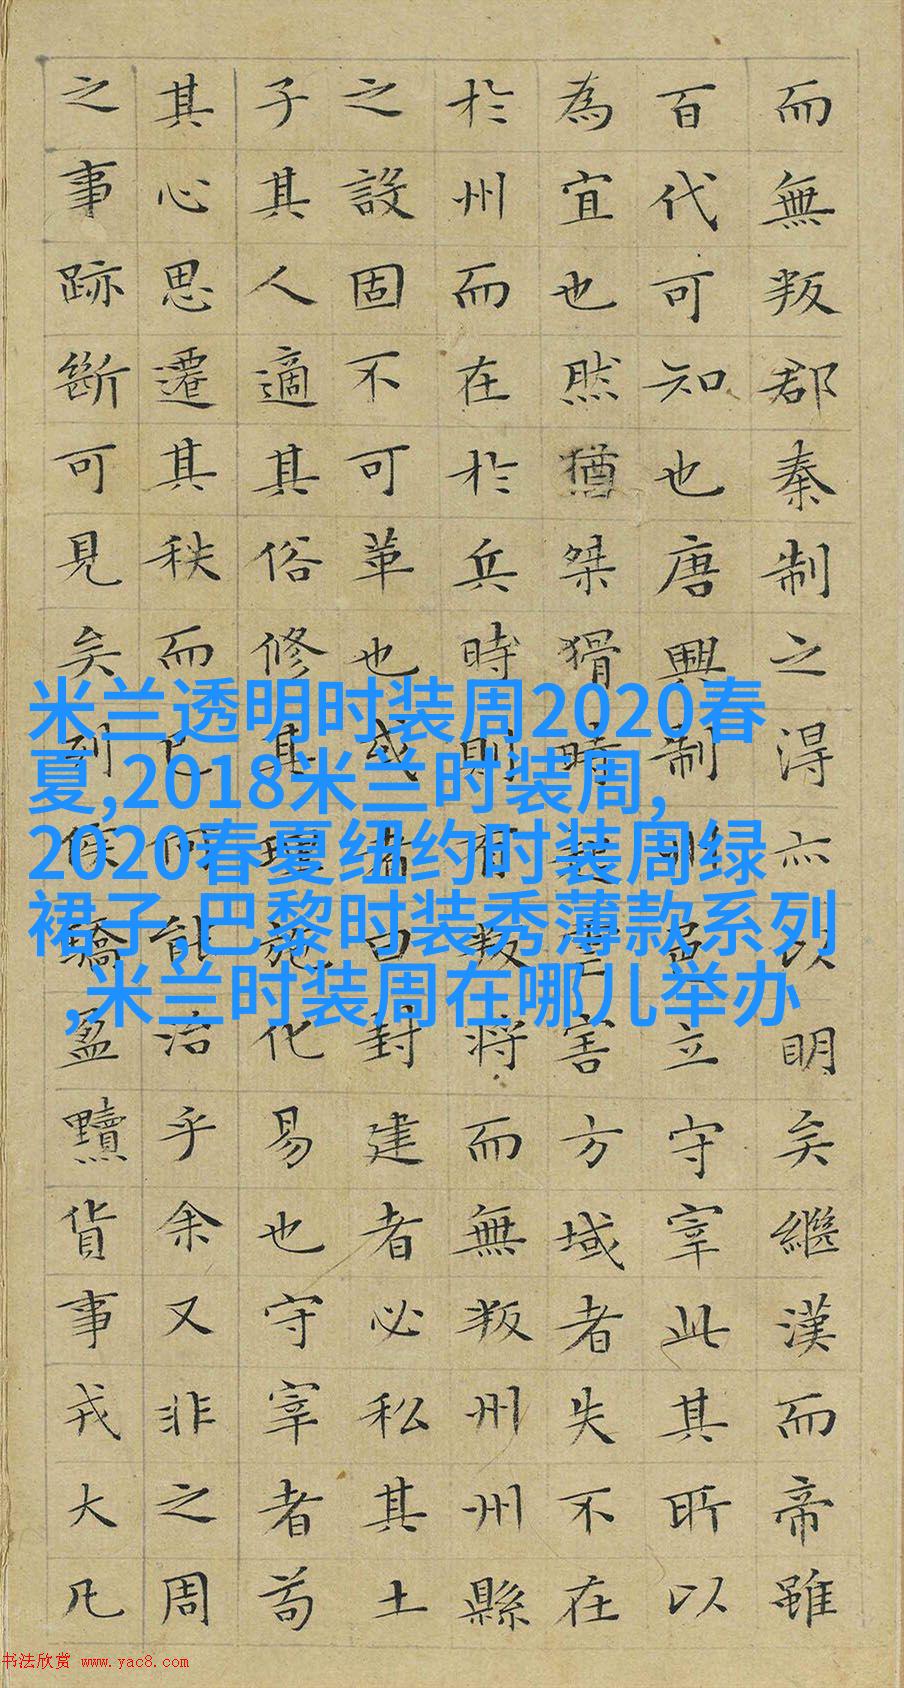 而無叛郡秦制之得亦以明矣繼漢而帝雖
百代可知也唐興制州邑立守宰此其所以
為宜也然猶桀猾時起虐害方域者失不在
於州而在於兵時則有叛將而無叛州州縣
之設固不可革也或者曰封建者必私其土
子其人適其俗修其理施化易也守宰者苟
其心思遷其秩而已何能治乎余又非之周
之事跡斷可見矣列侯驕盈黷貨事戎大凡
米兰透明时装周2020春
夏,2018米兰时装周,
2020春夏纽约时装周绿
裙子,巴黎时装秀薄款系列
,米兰时装周在哪儿举办
书法欣赏 www.yac8.com